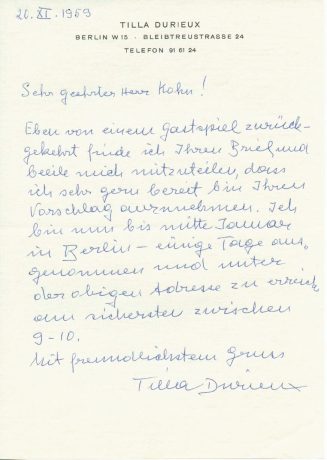 20. XI. 1959
TILLA DURIEUX
BERLIN W 15 · BLEIBTREUSTRASSE 24
TELEFON 91 61 24
Sehr geehrter Herr Kohn!
Eben von einem Gastspiel zurück-
gekehrt finde ich Ihren Brief und
beeile mich mitzuteilen, dass
ich sehr gern bereit bin Ihren
Vorschlag anzunehmen. Ich
bin nun bis mitte Januar
in Berlin – einige Tage aus-
genommen und unter
der obigen Adresse zu erreich
am sichersten zwischen
9-10.
Mit freundlichstem Gruss
Tilla Durieux